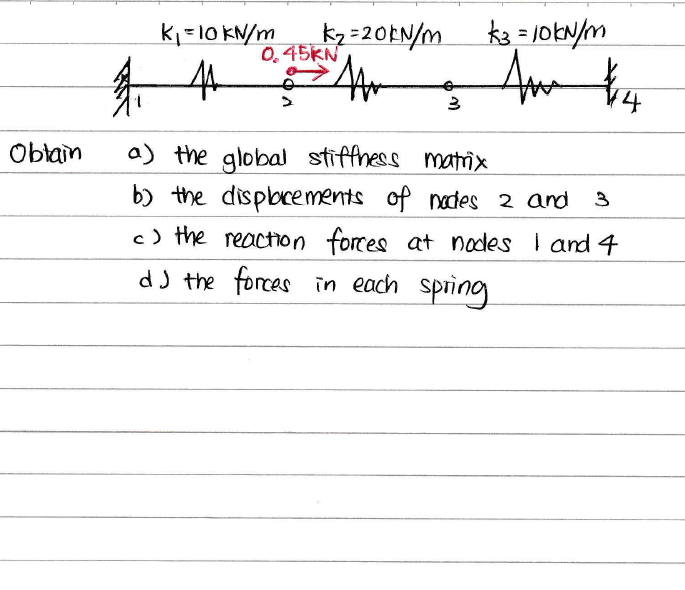 k₁=10 KN/m k₂=20KN/m k₃=10KN/m
0.45KN
1 2 3 4
Obtain a) the global stiffness matrix
b) the displacements of nodes 2 and 3
c) the reaction forces at nodes 1 and 4
d) the forces in each spring